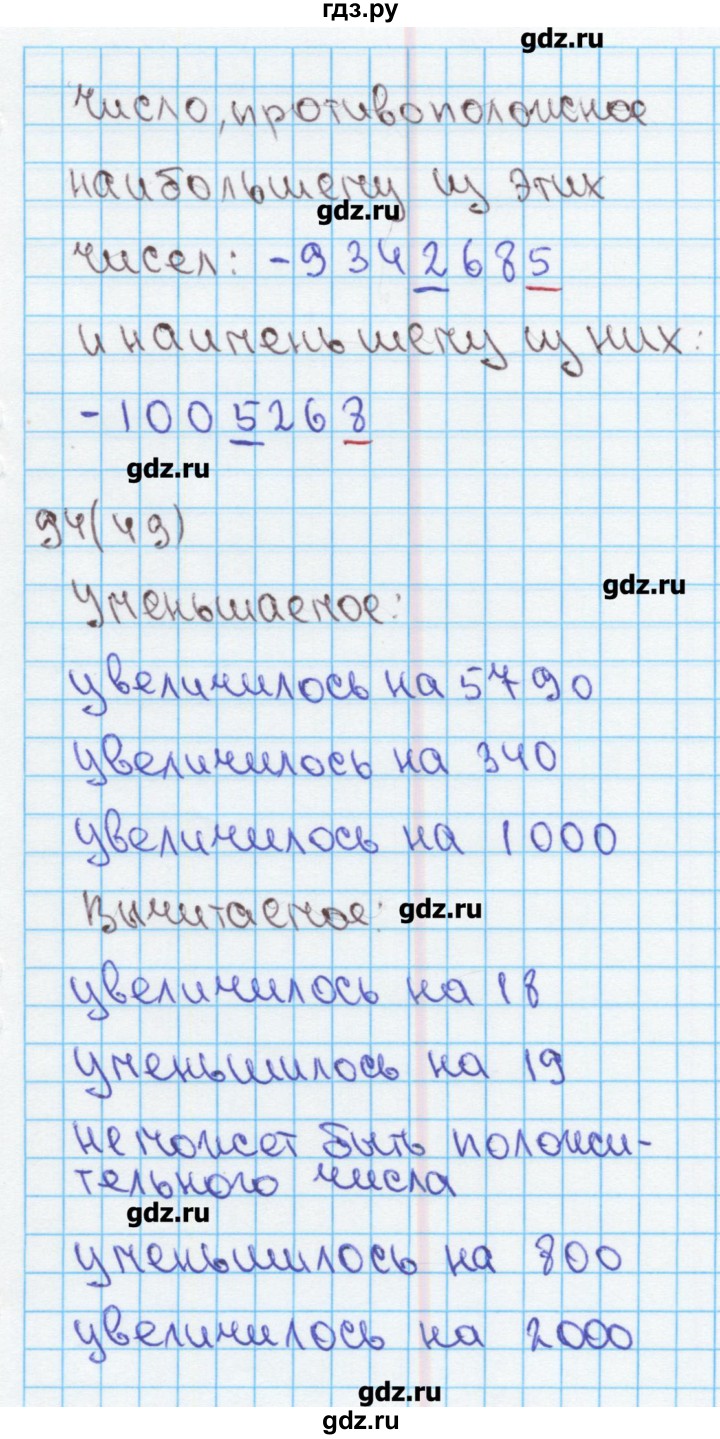 гдз.ру
gdz.ru
число, противоположное
наибольшему из этих
gdz.ru
чисел: -9342685
и наименьшему из них:
-1005268
gdz.ru
94(49)
gdz.ru
Уменьшаемое:
увеличилось на 5790
увеличилось на 340
увеличилось на 1000
Вычитаемое:
gdz.ru
увеличилось на 18
уменьшилось на 19
не может быть положи-
тельного числа
gdz.ru
уменьшилось на 800
увеличилось на 2000
gdz.ru
gdz.ru